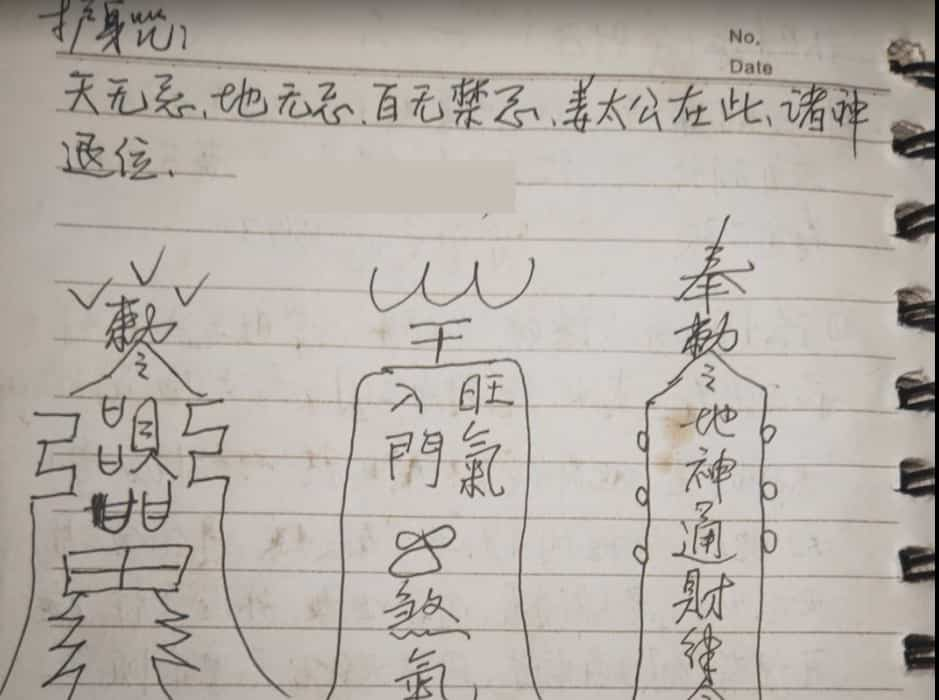 护身咒:
No.
Date
天无忌、地无忌、百无禁忌、姜太公在此、诸神
退位.
勅
令
奉
勅
令
旺氣
入門
煞
氣
地
神
通
財